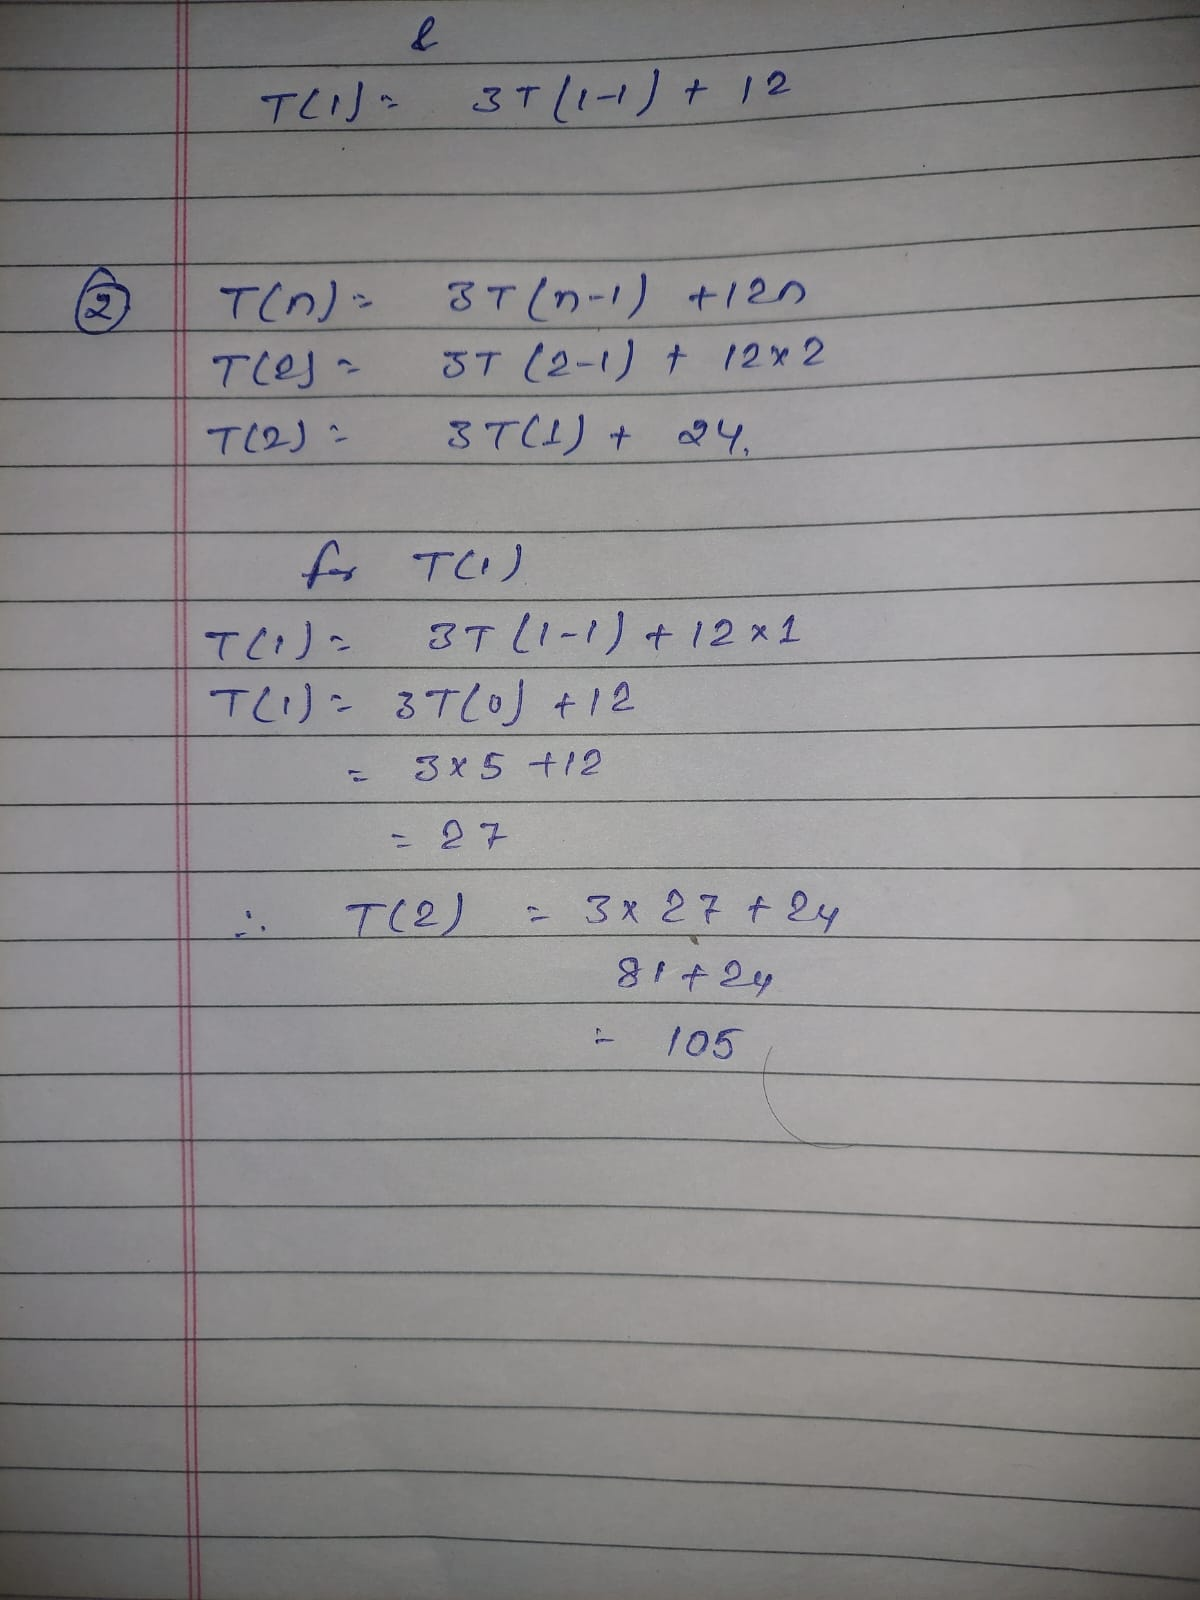 T(1) = 3T(1-1) + 12
② T(n) = 3T(n-1) + 12n
T(2) = 3T(2-1) + 12×2
T(2) = 3T(1) + 24.
for T(1)
T(1) = 3T(1-1) + 12×1
T(1) = 3T(0) + 12
= 3×5 + 12
= 27
∴ T(2) = 3×27 + 24
81 + 24
= 105